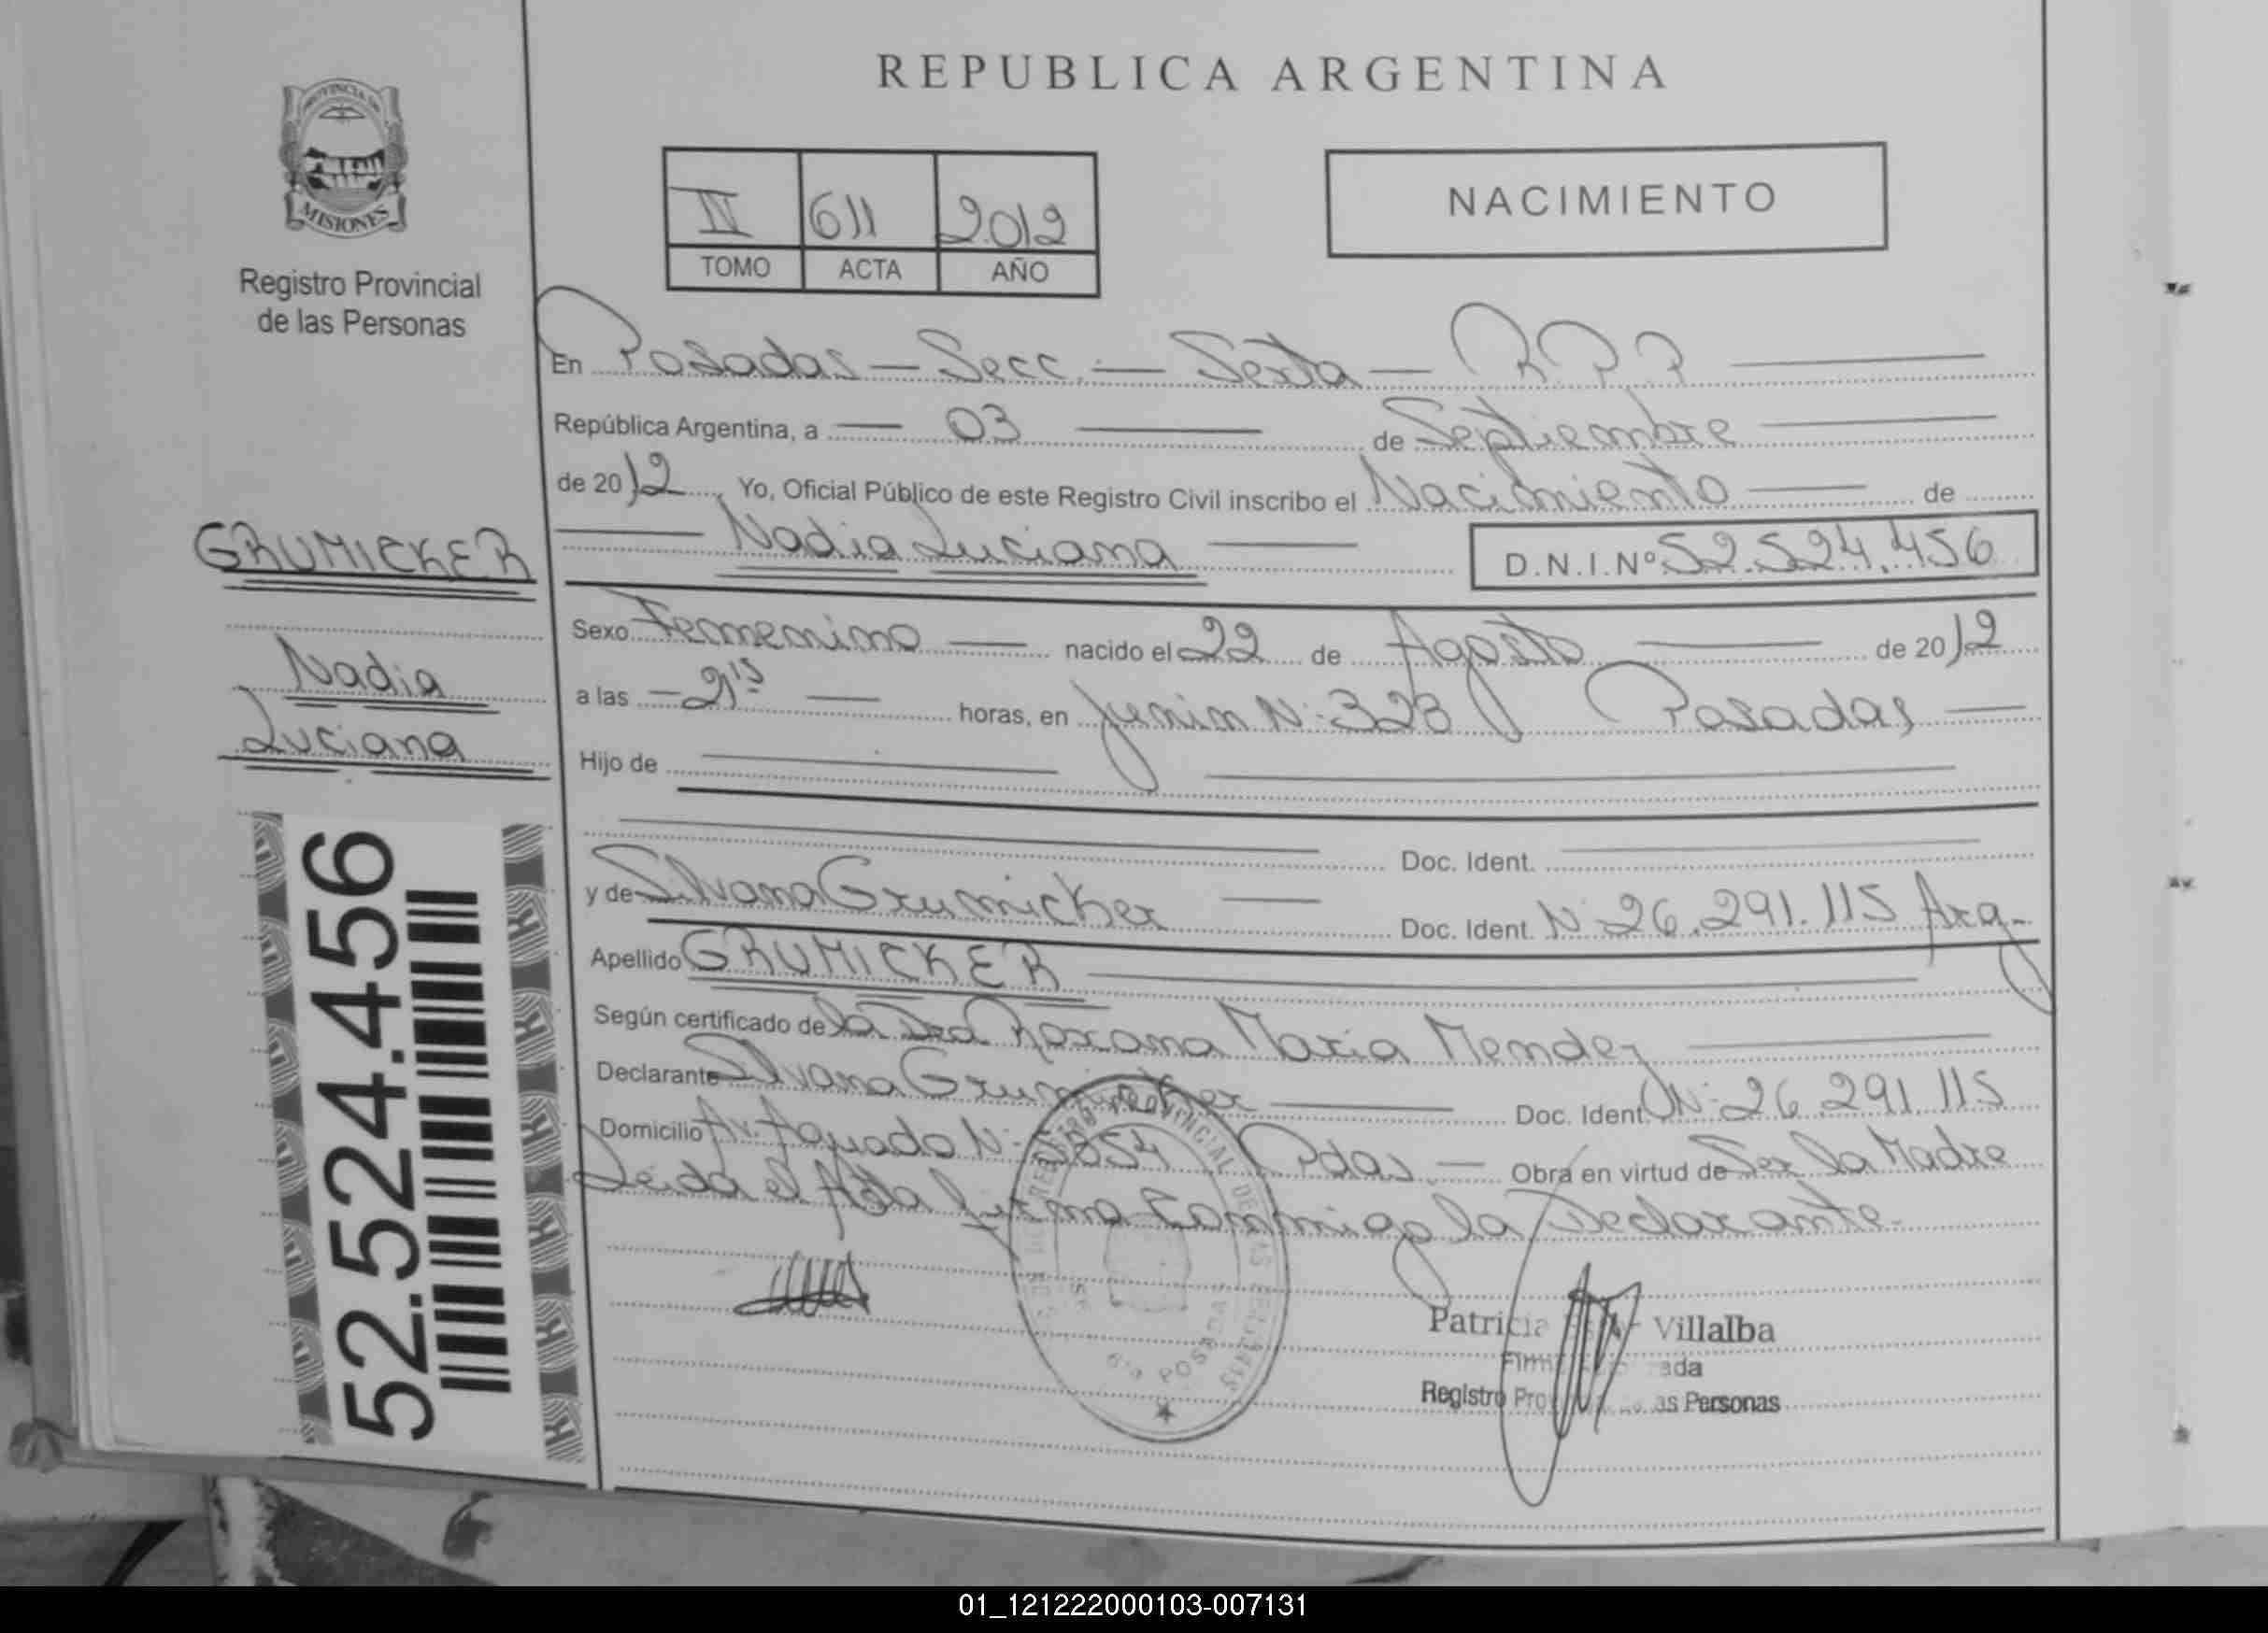 REPUBLICA ARGENTINA
PROVINCIA DE
MISIONES
Registro Provincial
de las Personas
IV 611 2012
TOMO ACTA AÑO
NACIMIENTO
En Posadas - Secc. - Sexta - R.P.P
República Argentina, a - 03 - de Septiembre
de 2012, Yo, Oficial Público de este Registro Civil inscribo el Nacimiento - de
Nadia Luciana D.N.I.Nº 52.524.456
GRUMICKER
Nadia
Luciana
Sexo Femenino - nacido el 22 de Agosto - de 2012
a las - 21 15 - horas, en Junin N: 323 Posadas -
Hijo de
Doc. Ident.
y de Silvana Grumicker - Doc. Ident. N: 26.291.115 Arg-
Apellido GRUMICKER
Según certificado de la Dra Roxana Maria Mendez
Declarante Silvana Grumicker - Doc. Ident. N: 26.291.115
Domicilio Av. Aguado N: 5854 Pdas. - Obra en virtud de Ser la Madre
Leida el Acta firma conmigo la Declarante.
52.524.456
REGISTRO PROVINCIAL DE LAS PERSONAS
POSADAS
Patricia Villalba
Registro as Personas
01_121222000103-007131